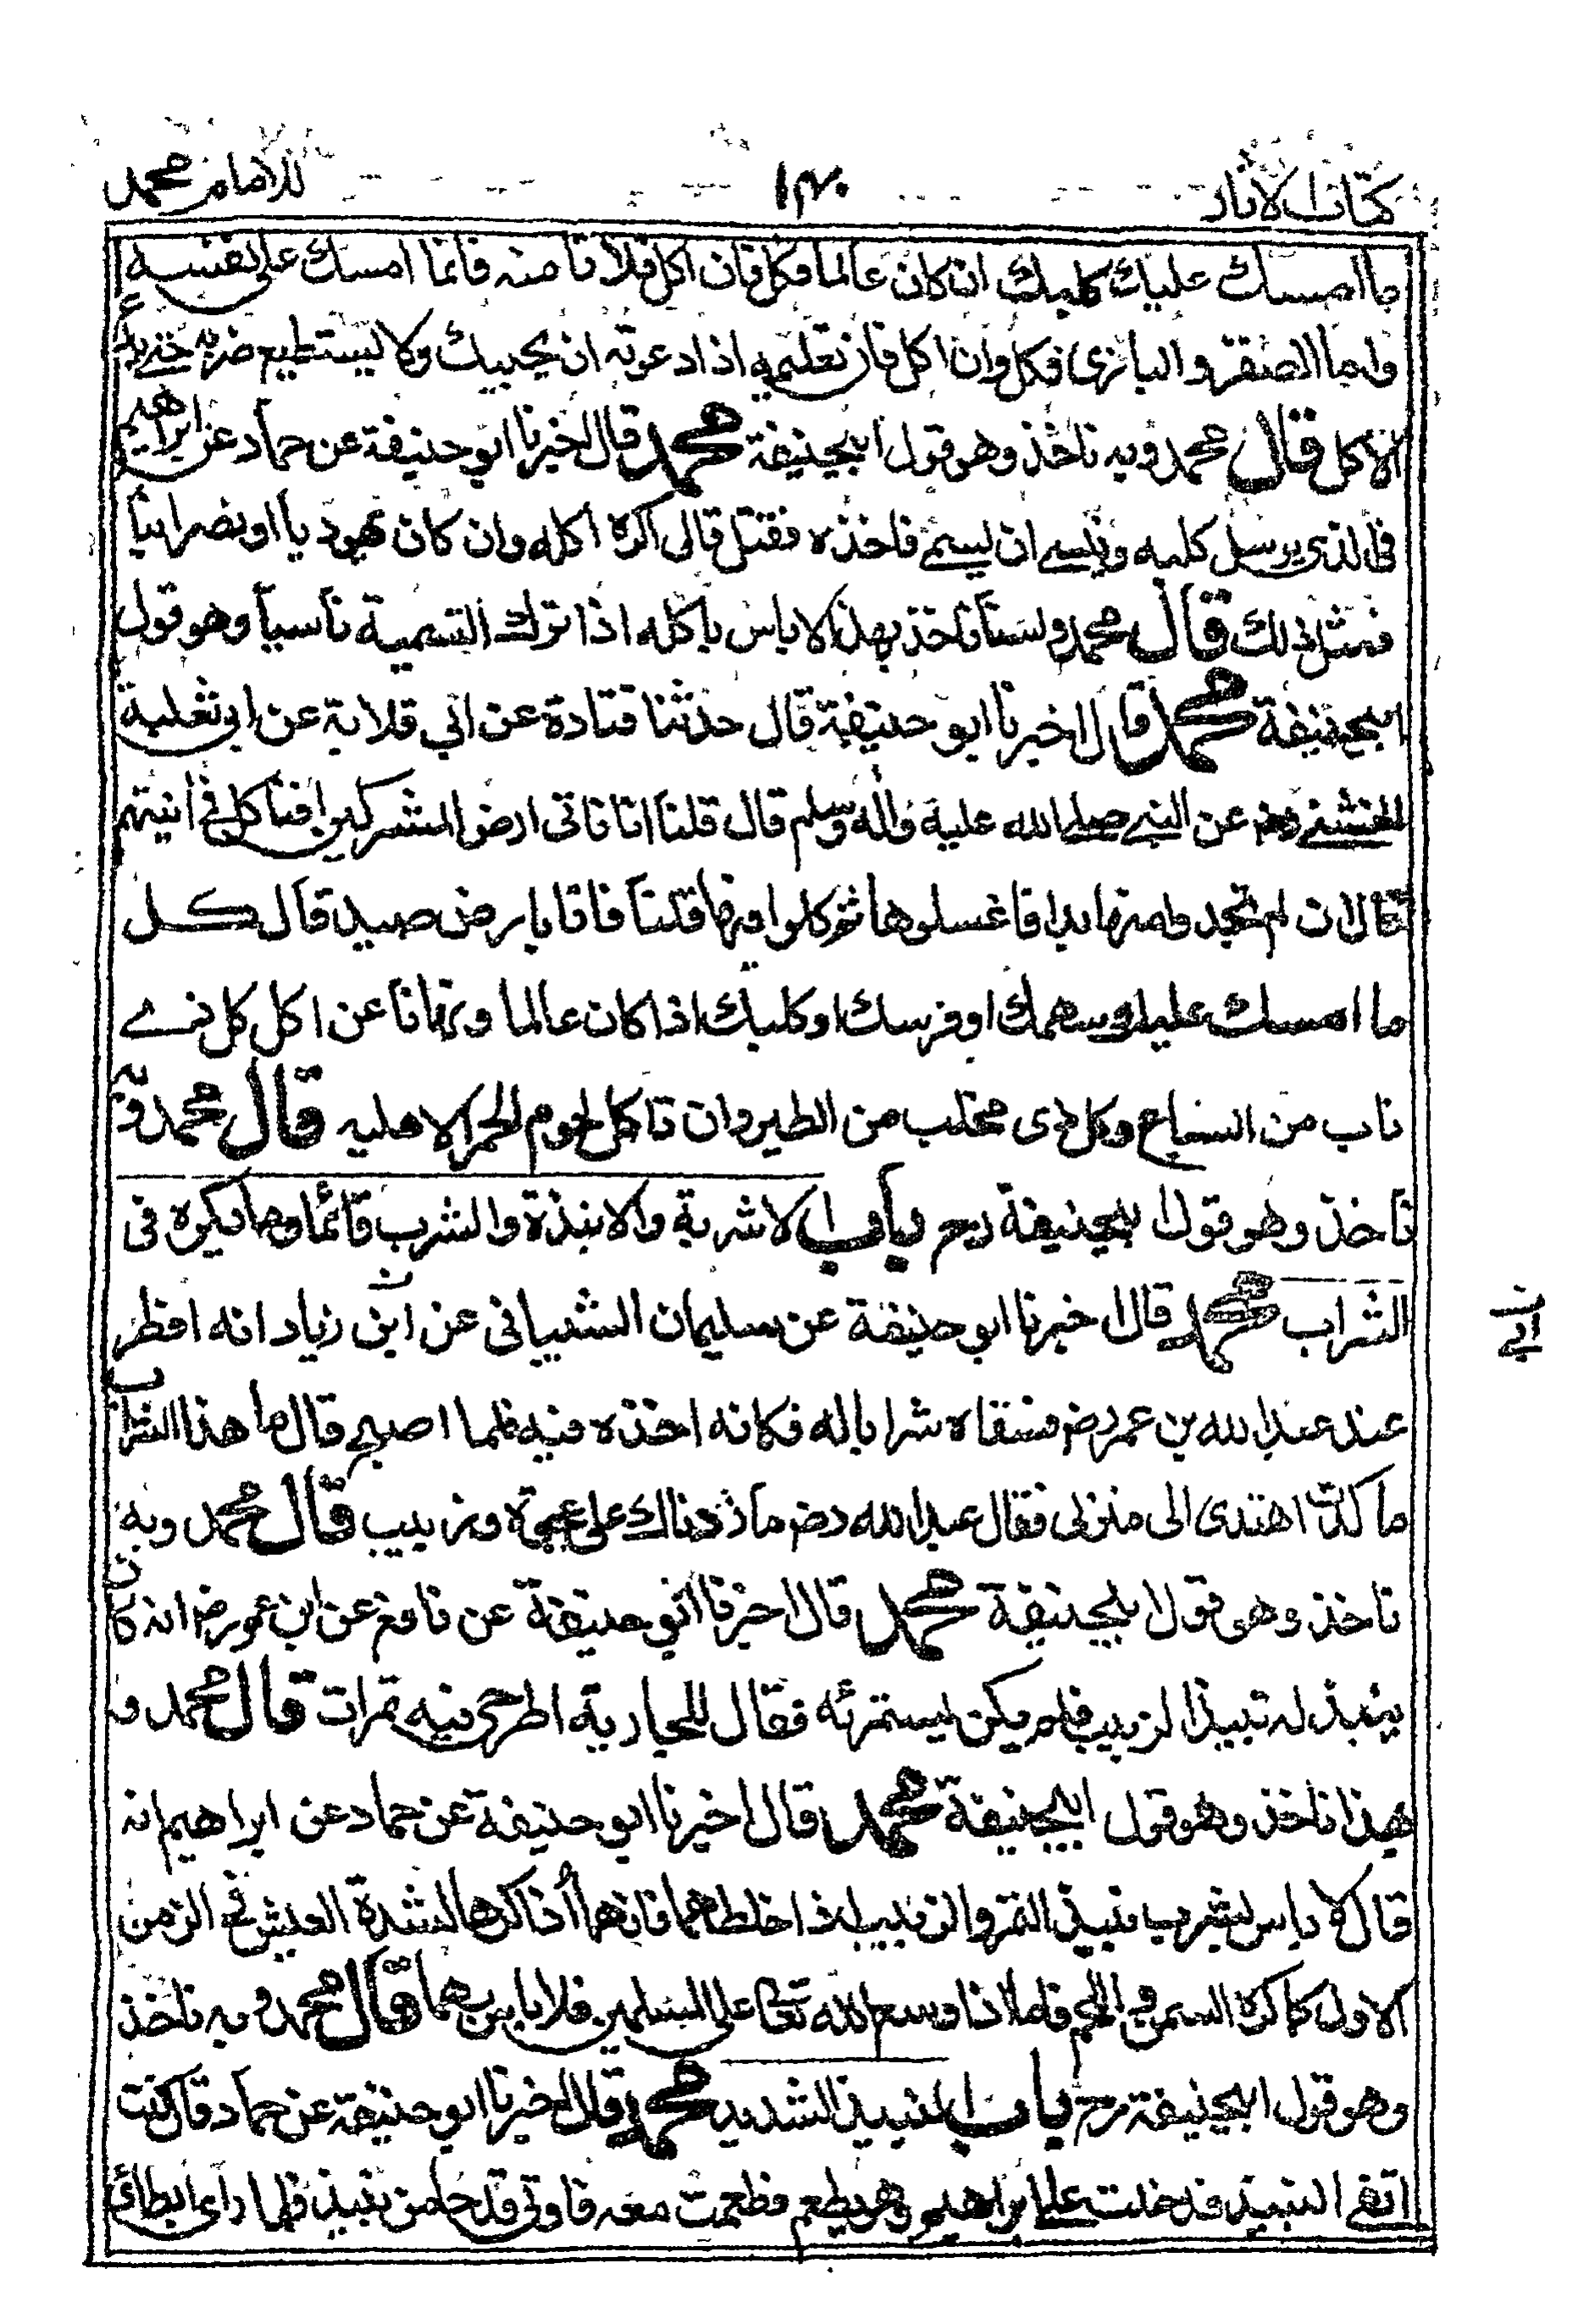 كتاب الاثار ١٤٠ للامام محمد
ما امسك عليك كلبك ان كان عالما فكل فان اكل فلا تاكل منه فانما امسك على نفسه
واما الصقر والبازى فكل وان اكل فان تعليمه اذا دعوته ان يجيبك ولا يستطيع ضربه حتى يدع
الاكل قال محمد وبه ناخذ وهو قول ابيحنيفة محمد قال اخبرنا ابو حنيفة عن حماد عن ابراهيم
فى الذى يرسل كلبه وينسى ان يسمى فاخذه فقتل قال اكره اكله وان كان يهوديا او نصرانيا
فمثل ذلك قال محمد ولسنا ناخذ بهذا لا باس باكله اذا ترك التسمية ناسيا وهو قول
ابيحنيفة محمد قال اخبرنا ابو حنيفة قال حدثنا قتادة عن ابي قلابة عن ابي ثعلبة
الخشنى رض عن النبى صلى الله عليه واله وسلم قال قلنا انا ناتى ارض المشركين افناكل فى انيتهم
فقال ان لم تجد وامنها بدا فاغسلوها ثم كلوا فيها قلنا فانا بارض صيد قال كل
ما امسك عليك سهمك او فرسك او كلبك اذا كان عالما ونهانا عن اكل كل ذى
ناب من السباع وكل ذى مخلب من الطير وان تاكل لحوم الحمر الاهليه قال محمد وبه
ناخذ وهو قول ابيحنيفة رح باب الاشربة والانبذة والشرب قائما وما يكره فى
الشراب محمد قال اخبرنا ابو حنيفة عن سليمان الشيبانى عن ابن زياد انه افطر
ابي
عند عبد الله بن عمر رض فسقاه شرابا له فكانه اخذه فيه فلما اصبح قال ما هذا الشراب
ما كدت اهتدى الى منزلى فقال عبد الله رض ما زدناك على عجوة وزبيب قال محمد وبه
ناخذ وهو قول ابيحنيفة محمد قال اخبرنا ابو حنيفة عن نافع عن ابن عمر رض انه كان
ينبذ له نبيذ الزبيب فلم يكن يستمرئه فقال للجارية اطرحى فيه تمرات قال محمد و
بهذا ناخذ وهو قول ابيحنيفة محمد قال اخبرنا ابو حنيفة عن حماد عن ابراهيم انه
قال لا باس بشرب نبيذ التمر والزبيب اذا خلطهما فانما كرها لشدة العيش فى الزمن
الاول كما كره السمن واللحم فاما اذا وسع الله تعالى على المسلمين فلا باس بهما قال محمد وبه ناخذ
وهو قول ابيحنيفة رح باب النبيذ الشديد محمد قال اخبرنا ابو حنيفة عن حماد قال كنت
اتقى النبيذ فدخلت على ابراهيم وهو يطعم فطعمت معه فاوتى قدحا من نبيذ فلما راى ابطائ